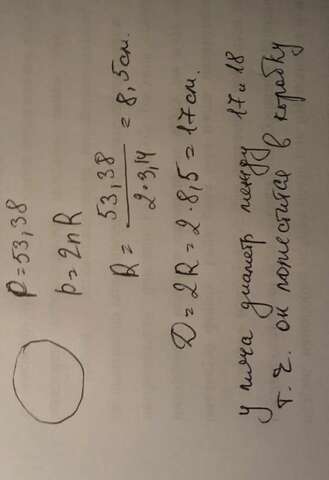 P = 53,38
p = 2пR
R = 53,38 / 2·3,14 = 8,5 см.
D = 2R = 2·8,5 = 17 см.
у мяча диаметр между 17 и 18
т.ч. он поместится в коробку